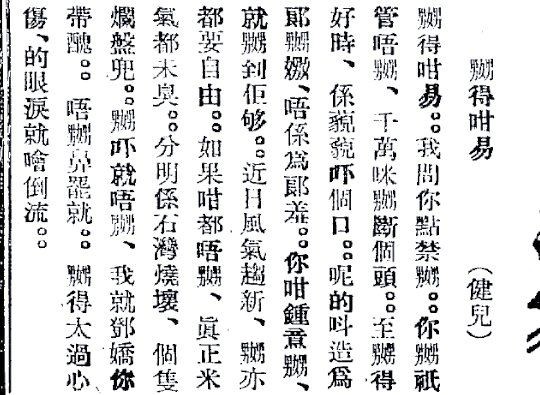 嬲得咁易　（健兒）
嬲得咁易。。我問你點禁嬲。。你嬲祇
管唔嬲、千萬咪嬲斷個頭。。至嬲得
好時、係貌貌吓個口。。呢的呌造爲
嬲嫐、唔係爲羞。。你咁鍾意嬲、
就嬲到佢够。。近日風氣趨新、嬲亦
都要自由。。如果咁都唔嬲、眞正米
氣都未臭。。分明係石灣燒壞、個隻
爛盤兜。。嬲吓就唔嬲、我就鄧嬌你
帶醜。。唔嬲鼻罷就。。嬲得太過心
傷、的眼淚就噲倒流。。